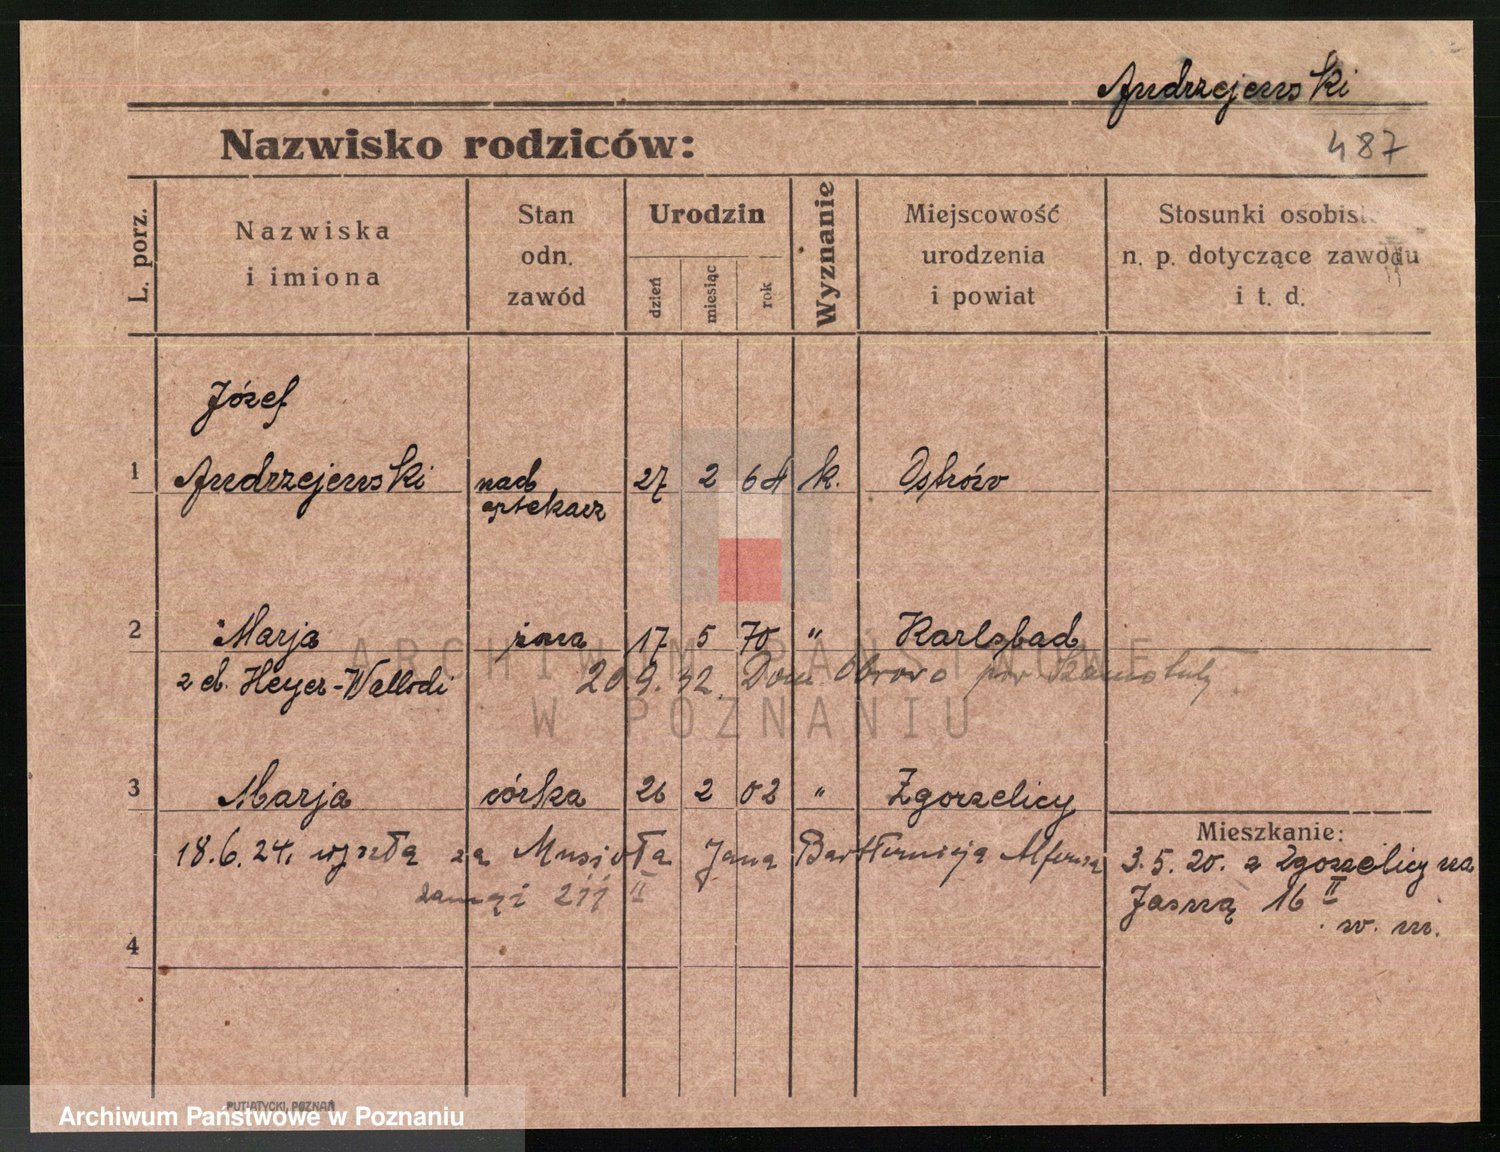 Andrzejewski
Nazwisko rodziców:
487
L. porz.
Nazwiska
i imiona
Stan
odn.
zawód
Urodzin
dzień
miesiąc
rok
Wyznanie
Miejscowość
urodzenia
i powiat
Stosunki osobist
n. p. dotyczące zawodu
i t. d.
Józef
1 Andrzejewski nad 27 2 64 k. Ostrów
aptekarz
2 Marja żona 17 5 70 " Karlsbad
z d. Heyer-Wallodi 20.9.32. Dom Obrovo pow. Szamotuły
3 Marja córka 26 2 02 " Zgorzelicy
Mieszkanie:
18.6.24. wyszła za Musioła Jana Bartłomieja Alfonsa
3.5.20. z Zgorzelicy na
Jasną 16 II
w. m.
II
4
ARCHIWUM PAŃSTWOWE
W POZNANIU
PUTIATYCKI, POZNAŃ
Archiwum Państwowe w Poznaniu